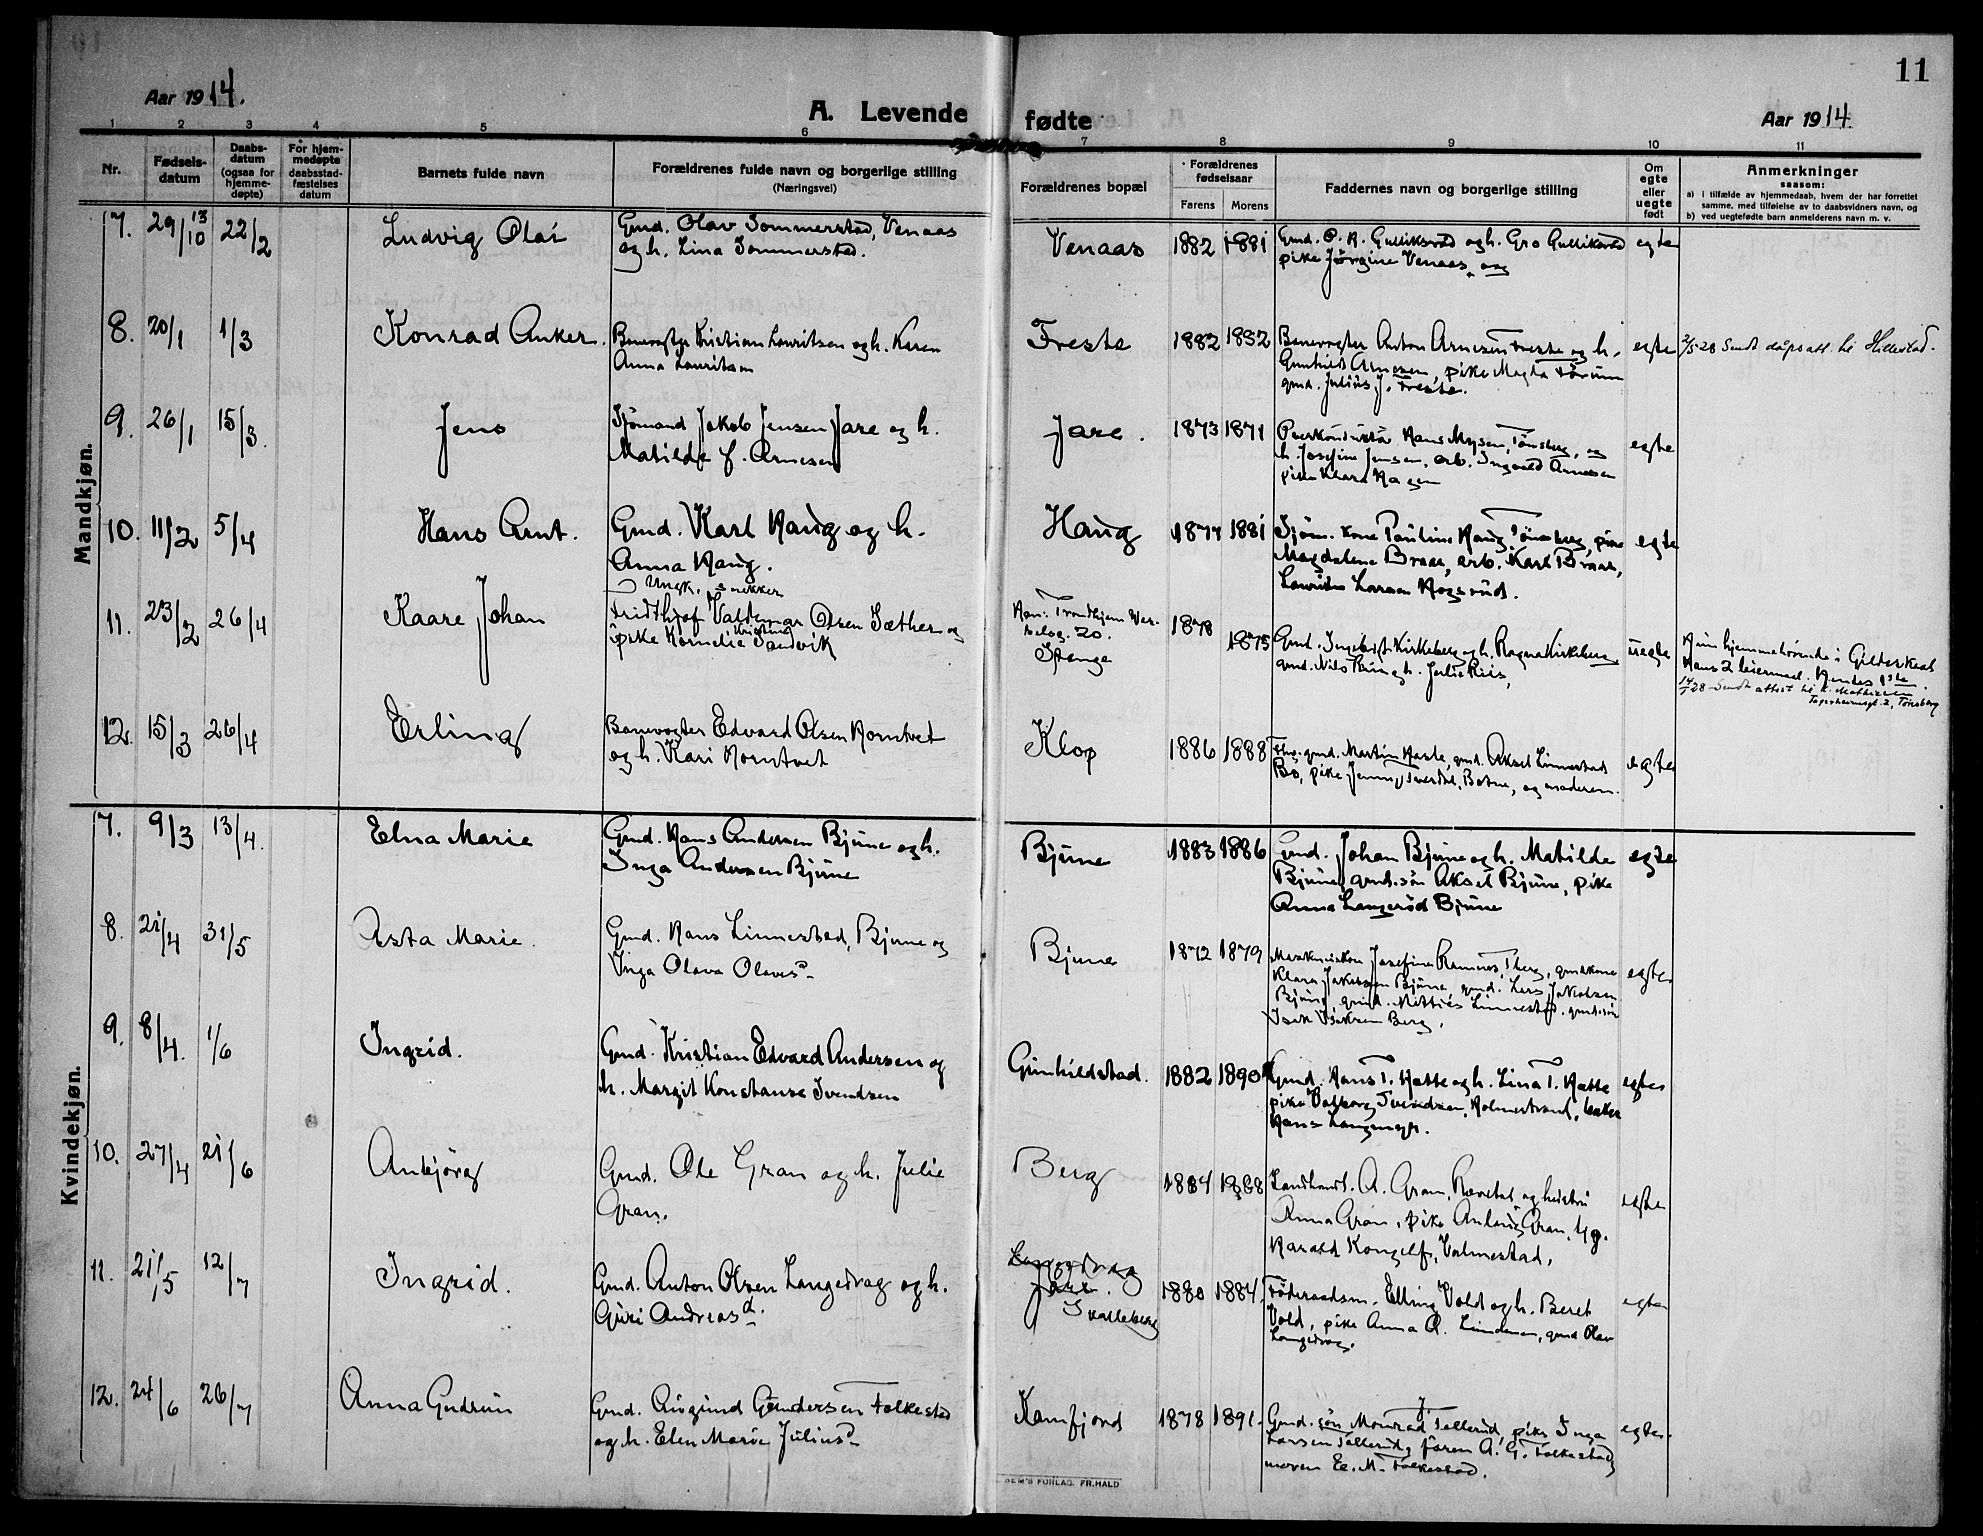 11
Aar 1914.
A. Levende fødte
Aar 1914.
1 2 3 4 5 6 7 8 9 10 11
Nr.
Fødsels-
datum
Daabs-
datum
(ogsaa for
hjemme-
døpte)
For hjem-
medøpte
daabsstad-
fæstelses
datum
Barnets fulde navn
Forældrenes fulde navn og borgerlige stilling
(Næringsvei)
Forældrenes bopæl
Forældrenes
fødselsaar
Farens Morens
Faddernes navn og borgerlige stilling
Om
egte
eller
uegte
født
Anmerkninger
saasom:
a) i tilfælde av hjemmedaab, hvem der har forrettet
samme, med tilføielse av to daabsvidners navn, og
b) ved uegtefødte barn anmelderens navn m. v.
Mandkjøn.
7. 29/10 13 22/2 Ludvig Olai
Gmd. Olav Sommerstad, Venaas
og h. Lina Sommerstad.
Venaas 1882 1881
Gmd. O. A. Gulliksrød og h. Gro Gulliksrød
pike Jørgine Venaas
egte
8. 20/1 1/3 Konrad Anker.
Banevogter Kristian Lauritsen og h. Karen
Anna Lauritsen
Freste 1882 1882
Banevogter Anton Arnesen Freste og h.
Gunhild Arnesen, pike Magda
gmd. Julius J. Freste.
egte
2/5 28 Sendt dåpsatt. til Hillestad.
9. 26/1 15/3. Jens
Sjömand Jakob Jensen Jare og h.
Matilde f. Arnesen
Jare. 1873 1871
Hans Mysen, Tønsberg, og
h. Josefine Jensen, arb. Ingvald Arnesen
pike Klara Hagen
egte
10. 11/2 5/4 Hans Arnt.
Gmd. Karl Haug og h.
Anna Haug.
Haug 1877 1881
Sjöm. kone Pauline Haug Tönsberg, pike
Magdalene Braar, arb. Karl Braar,
Lauritz Larsen
egte
11. 23/2 26/4 Kaare Johan
Ungk. snekker
Fridthjof Valdemar Olsen Sæther og
pike Kornelie Kristine Sandvik
Han: Trondhjem
20.
Stange
1878 1875
Gmd. Ingebrigt Kirkeberg og h. Ragna Kirkeberg
gmd. Nils Riis og h. Julie Riis,
uegte
Hun hjemmehörende i Gildeskaal
Hans 2 leiermaal. Hendes 1ste.
14/ 28 Sendt attest til K. Mathisen
2, Tønsberg
12. 15/3 26/4 Erling
Banevogter Edvard Olsen Horntvet
og h. Kari Horntvet
Klop 1886 1888
gmd. Martin gmd. Aksel Linnestad
Bo, pike Jenny Botne, og moderen.
egte
Kvindekjøn.
7. 9/3 13/4. Elna Marie
Gmd. Hans Andersen Bjune og h.
Inga Andersen Bjune
Bjune 1883 1886
Gmd. Johan Bjune og h. Matilde
Bjune, gmd.sön Aksel Bjune, pike
Anna Langeröd Bjune
egte
8. 21/4 31/5 Asta Marie.
Gmd. Hans Linnestad, Bjune og
Inga Olava Olavsd.
Bjune 1872 1879
Josefine Ramnes, Tbrg, gmd.kone
Klara Jakobsen Bjune, gmd. Lars Jakobsen
Bjune, gmd. Mathias Linnestad, gmd.sön
Isak Isaksen Berg.
egte
9. 8/4. 1/6 Ingrid.
Gmd. Kristian Edvard Andersen og
h. Margit Konstanse Svendsen
Gunhildstad. 1882 1890
Gmd. Hans T. Hatte og h. Lina T. Hatte
pike Valborg Svendsen, Holmestrand,
Hans Langemyr.
egte
10. 27/4 21/6 Anbjörg
Gmd. Ole Gran og h. Julie
Gran.
Berg 1884 1888
Landhandl. A. Gran, Revetal og hustru
Anna Gran, pike Gran,
Harald Kongelf, Valmestad,
egte
11. 21/5 12/7 Ingrid.
Gmd. Anton Olsen Langedrag og h.
Guri Andreasd.
Langedrag
Jare.
Skalleberg
1880 1884.
Föderaadsm. Elling Vold og h. Beret
Vold, pike Anna A. gmd Olav
Langedrag.
egte
12. 24/6 26/7 Anna Gudrun
Gmd. Augund Gundersen Folkestad
og h. Elen Marie Juliusd.
Kamfjord 1878 1891.
Gmd. sön Monrad J. Tellerud, pike Inga
Larsen Tellerud, faren A. G. Folkestad
moren E. M. Folkestad.
egte.
SEM'S FORLAG. FR.HALD